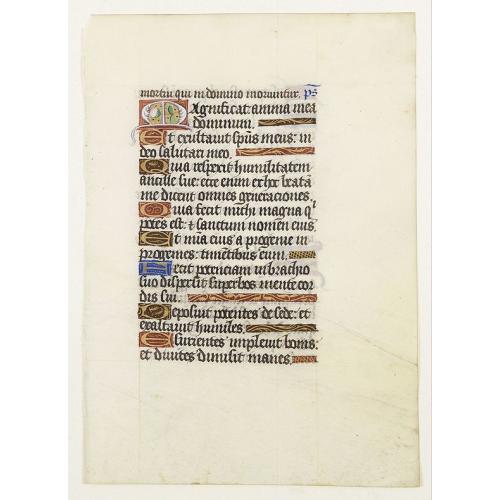 mortui qui in domino moriuntur. ps
Magnificat: anima mea
dominum.
Et exultavit spũs meus: in
deo salutari meo.
Quia respexit humilitatem
ancille sue: ecce enim ex hoc beatã
me dicent omnes generaciones.
Quia fecit michi magna q
potẽs est: et sanctum nomen eius.
Et mĩa eius a progenie in
progenies: timentibus eum.
Fecit potenciam in brachio
suo dispersit superbos mente cor
dis sui.
Deposuit potentes de sede: et
exaltavit humiles.
Esurientes implevit bonis:
et divites dimisit inanes.